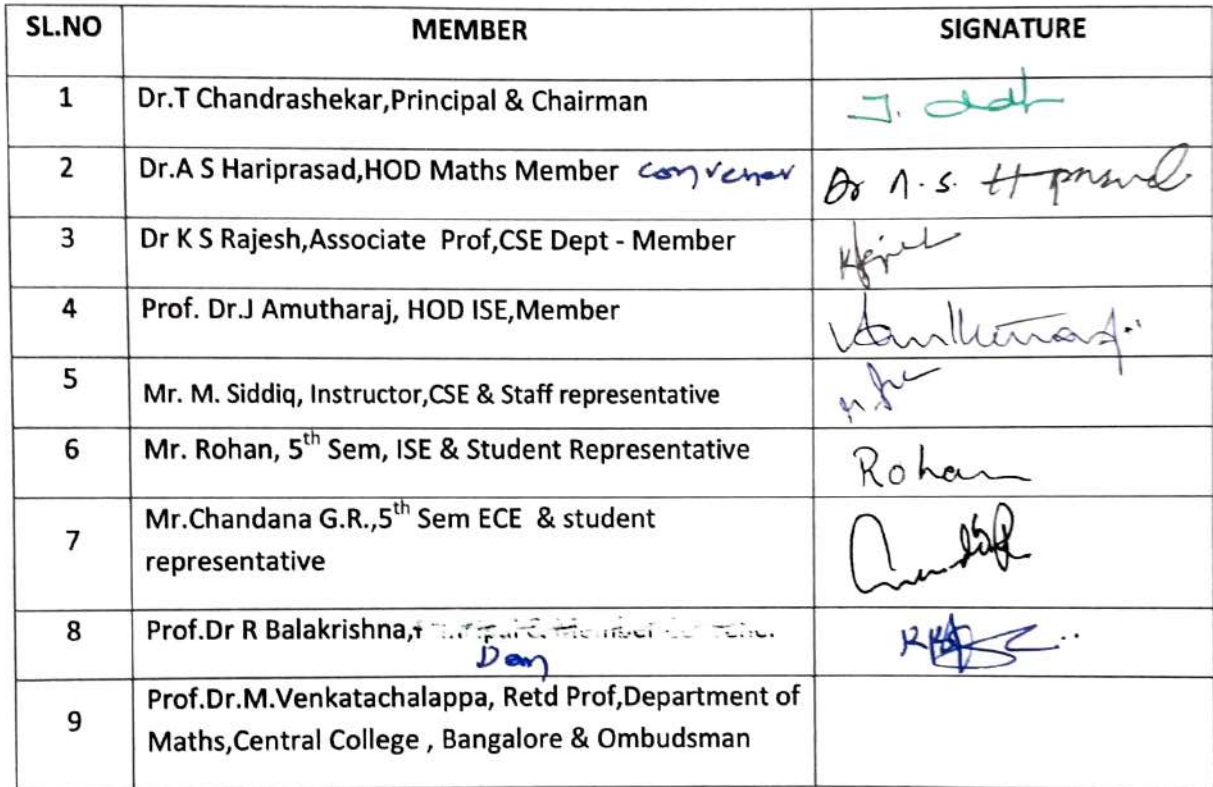 SL.NO MEMBER SIGNATURE
1 Dr.T Chandrashekar,Principal & Chairman
2 Dr.A S Hariprasad,HOD Maths Member convener
3 Dr K S Rajesh,Associate Prof,CSE Dept - Member
4 Prof. Dr.J Amutharaj, HOD ISE,Member
5 Mr. M. Siddiq, Instructor,CSE & Staff representative
6 Mr. Rohan, 5th Sem, ISE & Student Representative Rohan
7 Mr.Chandana G.R.,5th Sem ECE & student
representative
8 Prof.Dr R Balakrishna,
9 Prof.Dr.M.Venkatachalappa, Retd Prof,Department of
Maths,Central College , Bangalore & Ombudsman